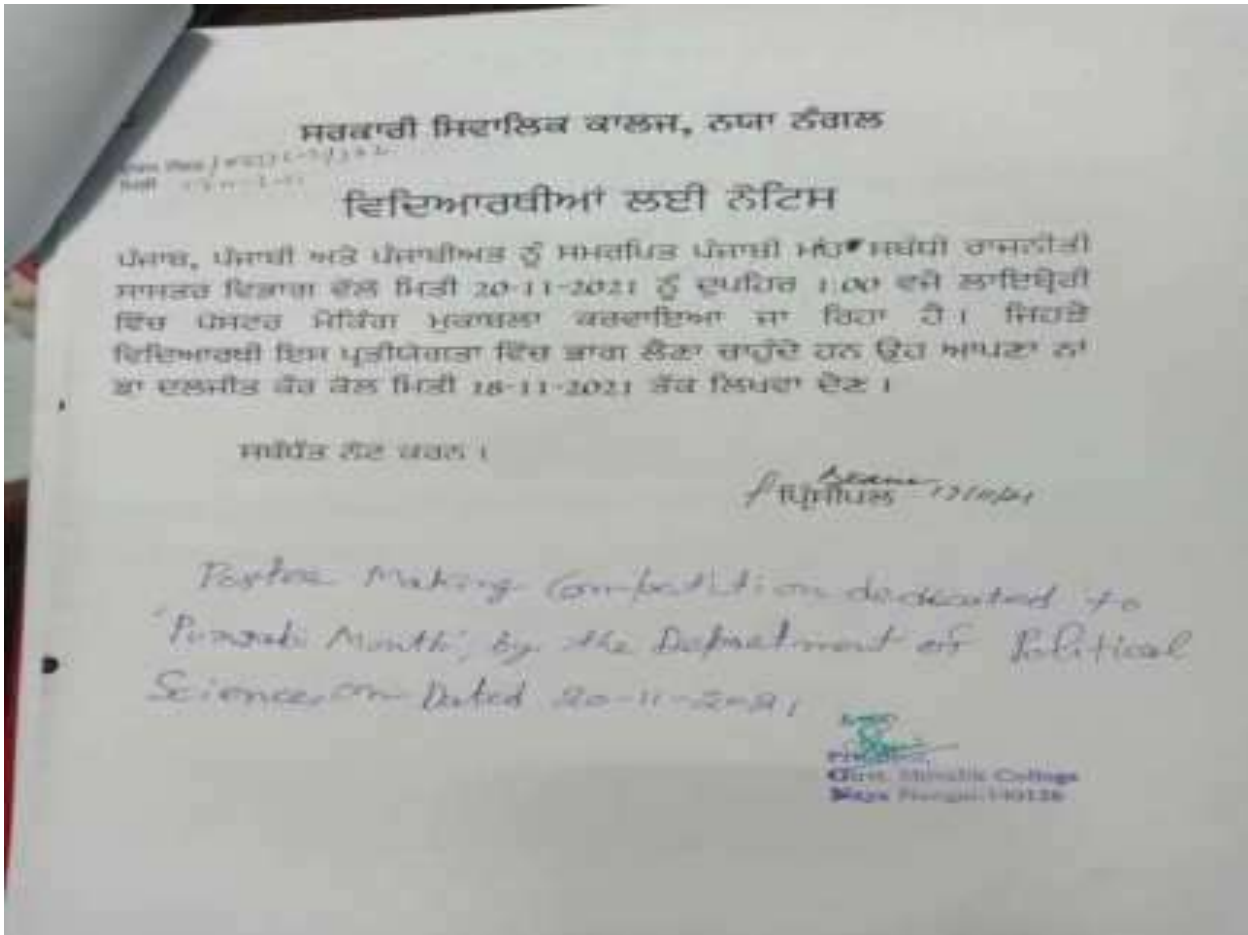 ਸਰਕਾਰੀ ਸਿਵਾਲਿਕ ਕਾਲਜ, ਨਯਾ ਨੰਗਲ
ਮਿਤੀ
ਵਿਦਿਆਰਥੀਆਂ ਲਈ ਨੋਟਿਸ
ਪੰਜਾਬ, ਪੰਜਾਬੀ ਅਤੇ ਪੰਜਾਬੀਅਤ ਨੂੰ ਸਮਰਪਿਤ ਪੰਜਾਬੀ ਮਾਂਹ ਸਬੰਧੀ ਰਾਜਨੀਤੀ
ਸਾਸਤਰ ਵਿਭਾਗ ਵੱਲੋਂ ਮਿਤੀ 20-11-2021 ਨੂੰ ਦੁਪਹਿਰ 1:00 ਵਜੇ ਲਾਇਬ੍ਰੇਰੀ
ਵਿੱਚ ਪੋਸਟਰ ਮੇਕਿੰਗ ਮੁਕਾਬਲਾ ਕਰਵਾਇਆ ਜਾ ਰਿਹਾ ਹੈ। ਜਿਹੜੇ
ਵਿਦਿਆਰਥੀ ਇਸ ਪ੍ਰਤੀਯੋਗਤਾ ਵਿੱਚ ਭਾਗ ਲੈਣਾ ਚਾਹੁੰਦੇ ਹਨ ਉਹ ਆਪਣਾ ਨਾਂ
ਡਾ ਦਲਜੀਤ ਕੌਰ ਕੋਲ ਮਿਤੀ 18-11-2021 ਤੱਕ ਲਿਖਵਾ ਦੇਣ ।
ਸਬੰਧਿਤ ਨੋਟ ਕਰਨ ।
ਪ੍ਰਿੰਸੀਪਲ 17/11/21
Poster Making Competition dedicated to
'Punjabi Month', by the Department of Political
Science, on Dated 20-11-2021
Principal
Govt. Shivalik College
Naya Nangal-140126